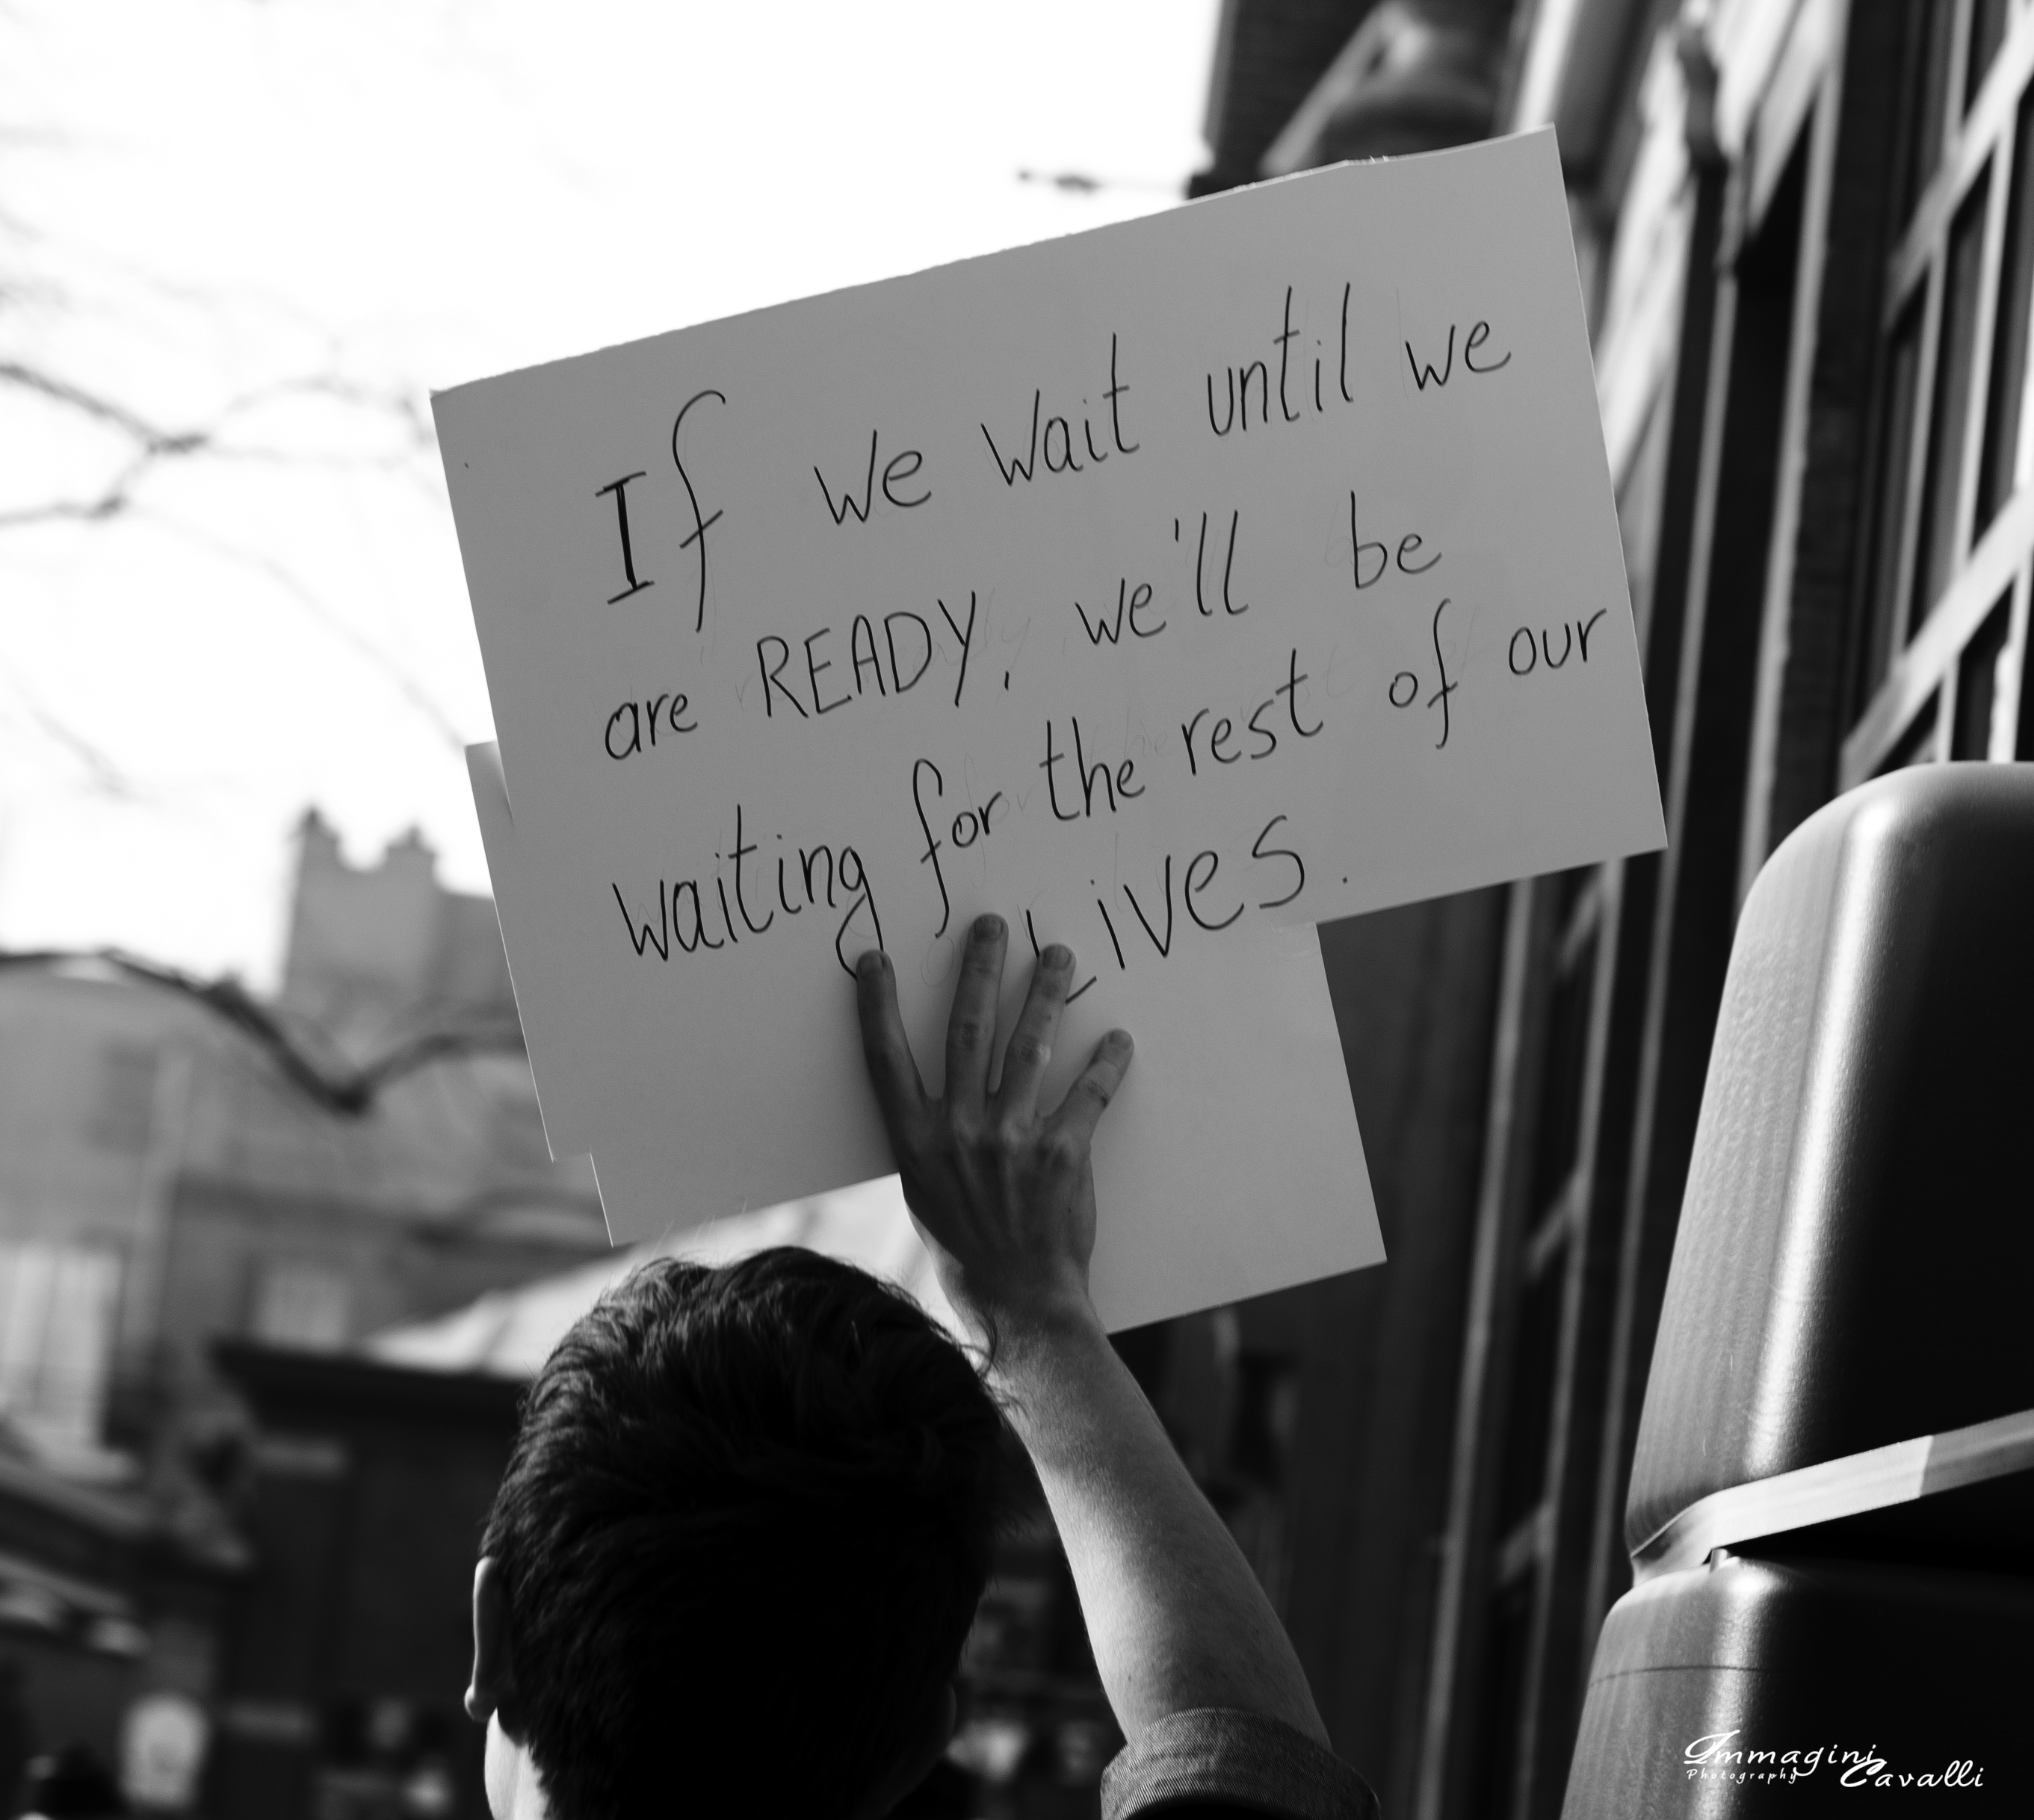 If we wait until we
are READY, we'll be
waiting for the rest of our
Lives.
Immagini
Photography Cavalli